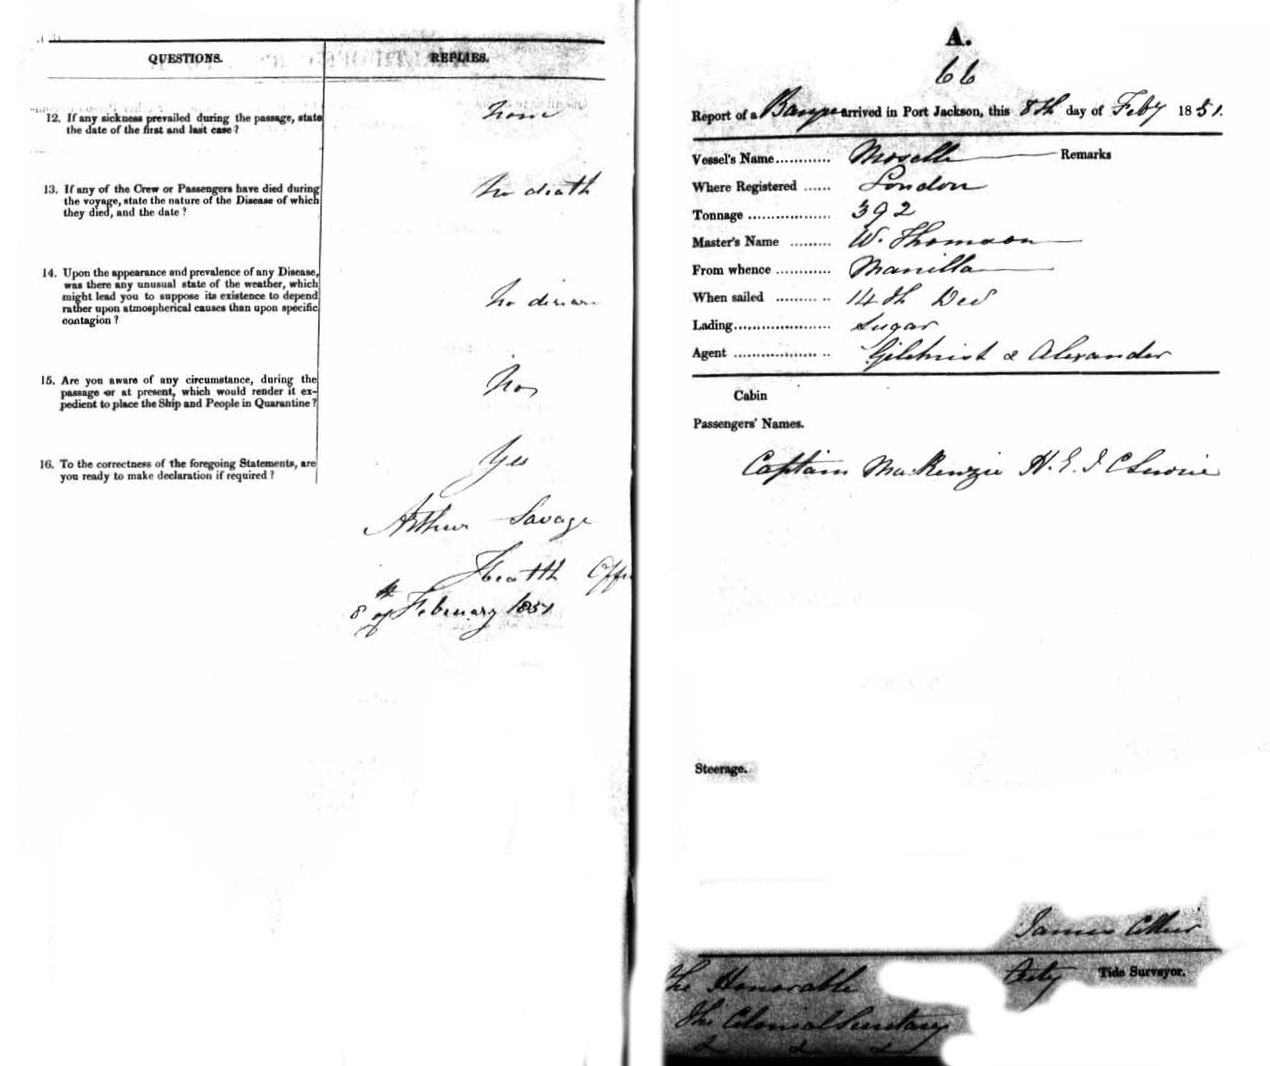 QUESTIONS.
REPLIES.
12. If any sickness prevailed during the passage, state
the date of the first and last case ?
None
13. If any of the Crew or Passengers have died during
the voyage, state the nature of the Disease of which
they died, and the date ?
No death
14. Upon the appearance and prevalence of any Disease,
was there any unusual state of the weather, which
might lead you to suppose its existence to depend
rather upon atmospherical causes than upon specific
contagion ?
No disease
15. Are you aware of any circumstance, during the
passage or at present, which would render it ex-
pedient to place the Ship and People in Quarantine ?
No
16. To the correctness of the foregoing Statements, are
you ready to make declaration if required ?
Yes
Arthur Savage
Health Offi
8th of February 1851
A.
66
Report of a Barque arrived in Port Jackson, this 8th day of Feby 1851.
Vessel's Name............ Moselle Remarks
Where Registered ...... London
Tonnage .................. 392
Master's Name ......... W. Thomson
From whence ............ Manilla
When sailed ......... .. 14th Dec
Lading..................... Sugar
Agent .................. .. Gilchrist & Alexander
Cabin
Passengers' Names.
Captain MacKenzie H.E.I.C Service
Steerage.
James
Tide Surveyor.
The Honorable
The Colonial Secretary